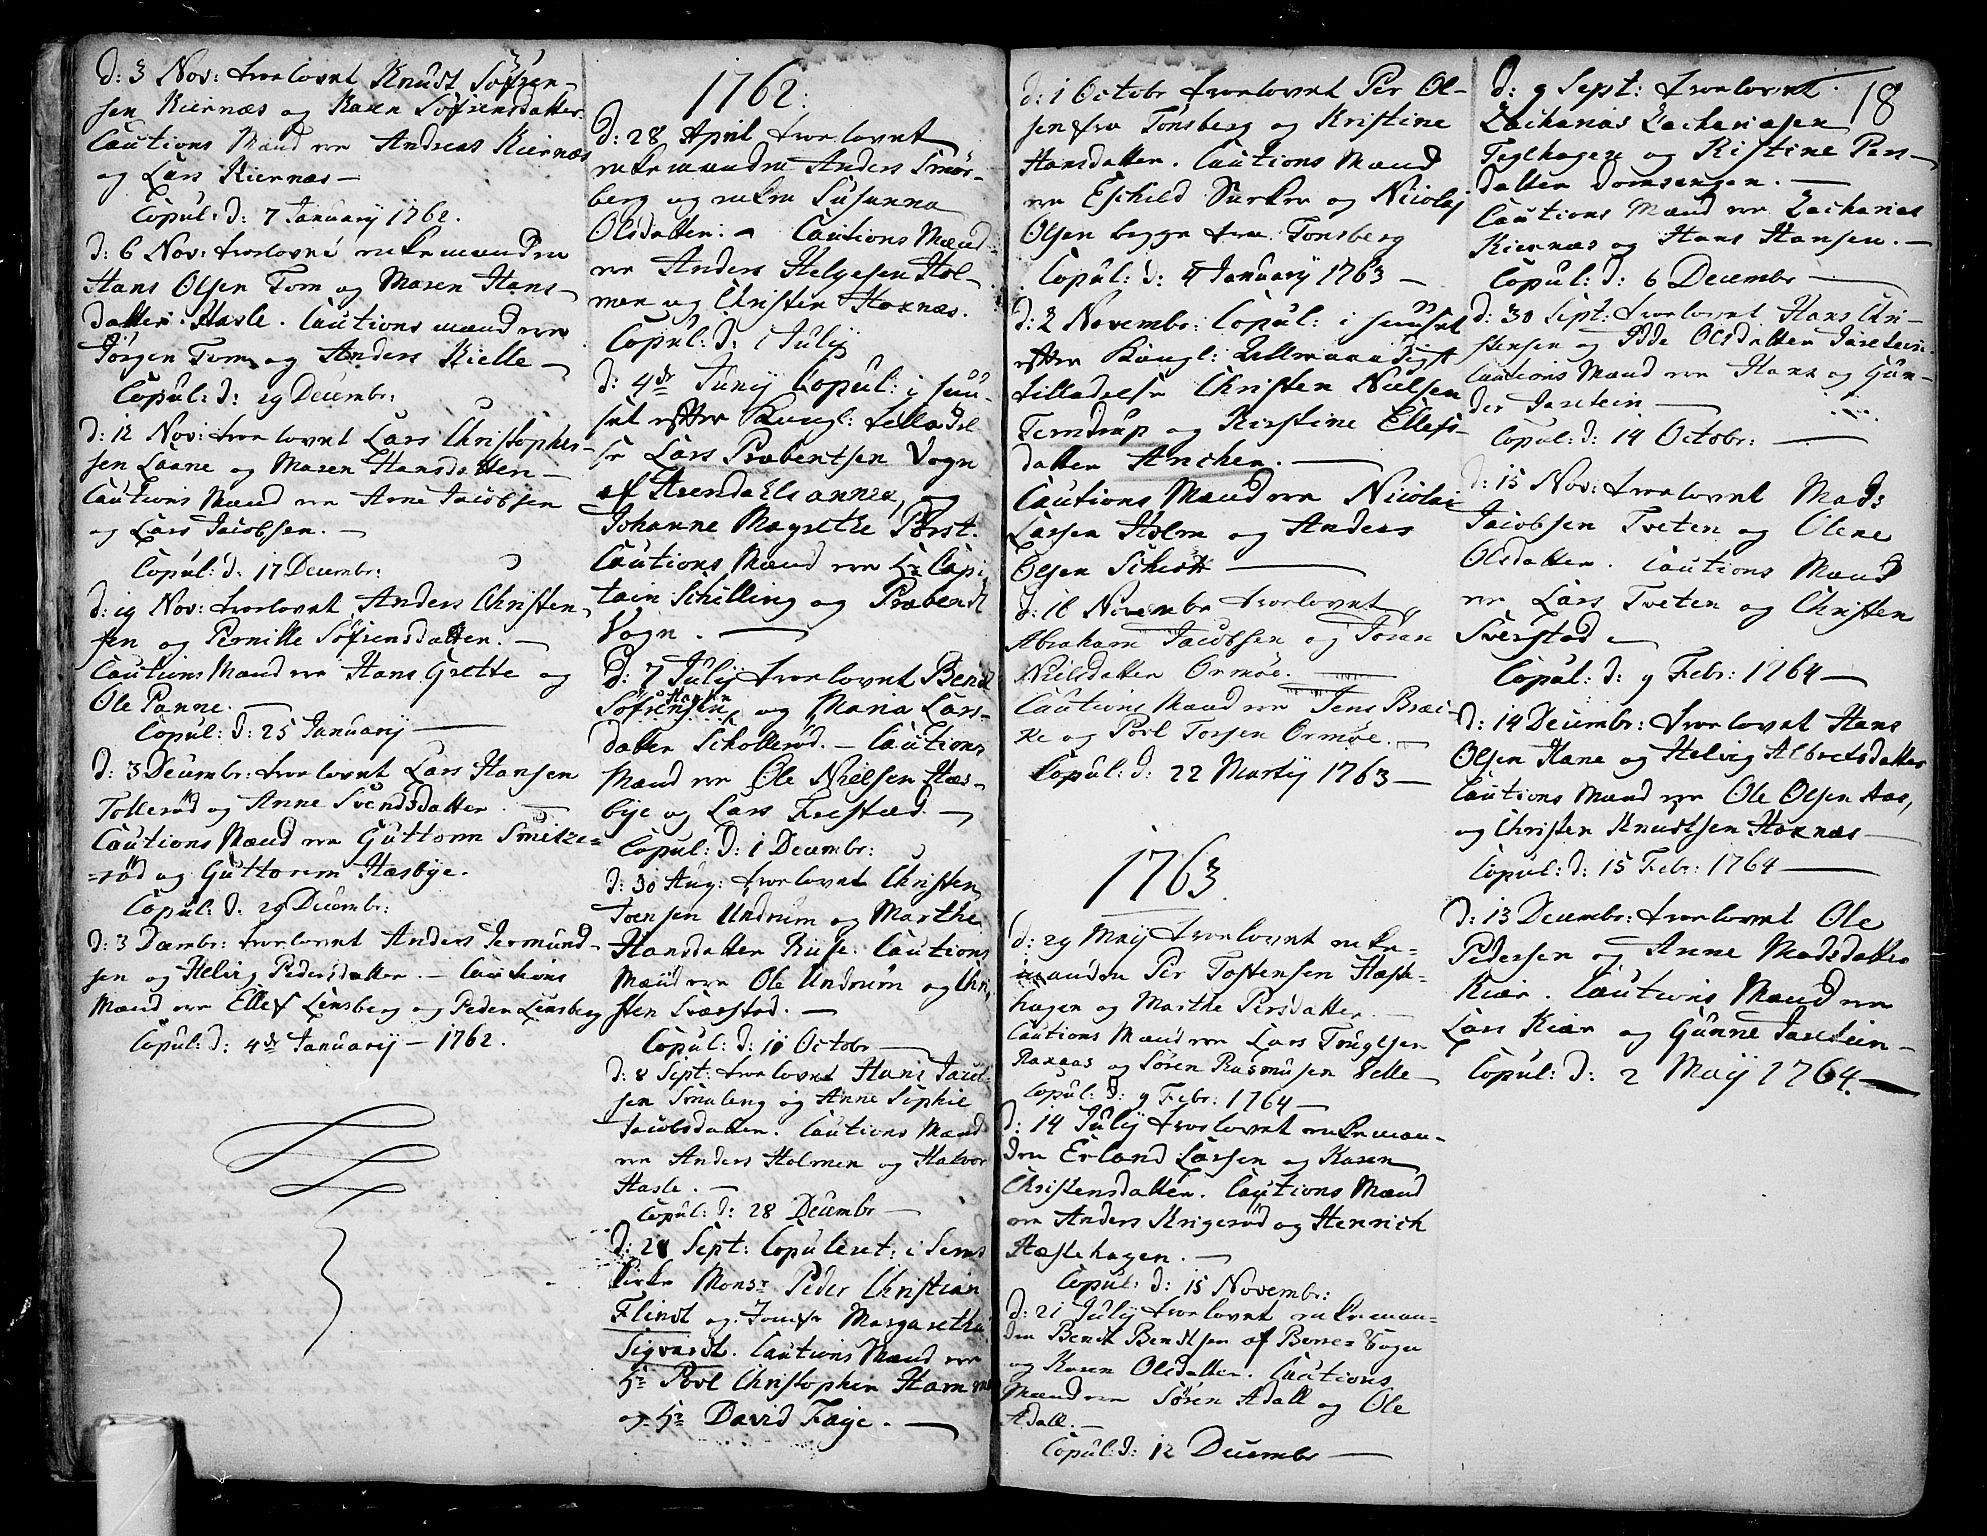 d: 3 Nov: trolovet Knudt Söfren-
sen Kiernæs og Karen Söfrensdatter
Cautions Mænd ere Andreas Kiernæs
og Lars Kiernæs —
Copul: d: 7 January 1762.
d: 6 Nov: trolovet enkemanden
Hans Olsen Tom og Maren Hans-
datter Hasle. Cautions mænd ere
Jörgen Tom og Anders Kielle —
Copul: d: 29 Decembr:
d: 12 Nov: trolovet Lars Christopher-
sen Laane og Maren Hansdatter —
Cautions Mænd ere Arne Jacobsen
og Lars Jacobsen. —
Copul: d: 17 Decembr:
d: 19 Nov: trolovet Anders Christen-
sen og Pernille Söfrensdatter. —
Cautions Mænd ere Hans Grette og
Ole Panne. —
Copul: d: 25 January —
d: 3 Decembr: trolovet Lars Hansen
Tolleröd og Anne Svendsdatter —
Cautions Mænd ere Guttorm Smitze-
=röd og Guttorm Hasbye.
Copul: d: 29 Decembr:
d: 3 Dæmbr: trolovet Anders Jermund-
sen og Helvig Pedersdatter. — Cautions
Mænd ere Ellef Linsberg og Peder Linsberg
Copul: d: 4de January — 1762.
1762:
d: 28 April trolovet
enkemanden Anders Smörs-
berg og enken Susanna
Olsdatter. — Cautions Mænd
ere Anders Helgesen Hol-
men og Christen Hoxnæs.
Copul: d: 1 July
d: 4de Juny Copul: i huu-
set efter Kongl: tilladel
se Lars Præbentsen Vogn
af Arendals annex, og
Johanne Magrethe Porst.
Cautions Mænd ere Hr Capi-
tain Schilling og Præbendt
Vogn. —
d: 7 July trolovet Bendt
Hansen
Söfrensen og Maria Lars-
datter Scholleröd. — Cautions
Mænd ere Ole Nielsen Hæs-
bye og Lars Frestæd. —
Copul: d: 1 Decembr:
d: 30 Aug: trolovet Christen
Iversen Undrum og Marthe
Hansdatter Ruse. Cautions
Mænd ere Ole Undrum og Chri
sten Sværstad. —
Copul: d: 11 Octobr —
d: 8 Sept: trolovet Hans Jacob-
sen Smaleng og Anne Sophie
Jacobsdatter. Cautions Mænd
ere Anders Holmen og Halvor
Hasle. —
Copul: d: 28 Decembr —
d: 28 Sept: Copuleret: i Sems
kirke Monsr Peder Christian
Flindt og Jomfr Margaretha
Sigvardt. Cautions Mænd ere
Hr Povl Christopher Hammer
og Hr David Faye. —
d: 1 Octobr trolovet Per Ol-
sen fra Tönsberg og Kristine
Hansdatter. Cautions Mænd
ere Eschild Surker og Nicolaj
Olsen begge fra Tönsberg
Copul: d: 4 January 1763 —
d: 2 Novembr: Copul: i huuset
efter Kongl: Allernaadigst
tilladelse Christen Nielsen
Terndrup og Kirstine Ellefs-
datter Anchen. —
Cautions Mænd ere Nicolai
Larsen Holm og Anders
Olsen Schiött —
d: 16 Novembr trolovet
Abraham Jacobsen og Jören
Nielsdatter Ormöe.
Cautions Mænd ere Jens Bræc-
ke og Povl Torsen Ormöe. —
Copul: d: 22 Marty 1763 —
1763.
d: 29 May trolovet enke-
manden Per Tostensen Hæste-
hagen og Marthe Persdatter. —
Cautions Mænd ere Lars Fougesen
Ramnas og Sören Rasmusen Velle
Copul: d: 9 Febr: 1764 —
d: 14 July trolovet enkeman-
den Erland Larsen og Karen
Christensdatter. Cautions Mænd
ere Anders Krigeröd og Henrich
Hæstehagen. —
Copul: d: 15 Novembr:
d: 21 July trolovet enkeman-
den Bendt Bendtsen af Borre=Sogn
og Karen Olsdatter. Cautions
Mænd ere Sören Adall og Ole
Adall. —
Copul: d: 12 Decembr —
18
d: 9 Sept: trolovet
Zacharias Zachariasen
Teglhagen og Kistine Pers-
datter Domsengen. —
Cautions Mænd ere Zacharias
Kiernæs og Hans Hansen. —
Copul: d: 6 Decembr —
d: 30 Sept: trolovet Hans Chri-
stensen og Idde Olsdatter Jarelein.
Cautions Mænd ere Hans og Gun-
der Jarelein —
Copul: d: 14 Octobr: —
d: 15 Nov: trolovet Mads
Jacobsen Tveten og Olene
Olsdatter. Cautions Mænd
ere Lars Tveten og Christen
Sverstad —
Copul: d: 9 Febr: 1764 —
d: 14 Decembr: trolovet Hans
Olsen Hane og Helvig Albretsdatter
Cautions Mænd ere Ole Olsen Aas,
og Christen Knudtsen Hoxnæs —
Copul: d: 15 Febr: 1764 —
d: 13 Decembr: trolovet Ole
Pedersen og Anne Madsdatter
Kiær. Cautions Mænd ere
Lars Kiær og Gunne Jarelein —
Copul: d: 2 May 1764 —